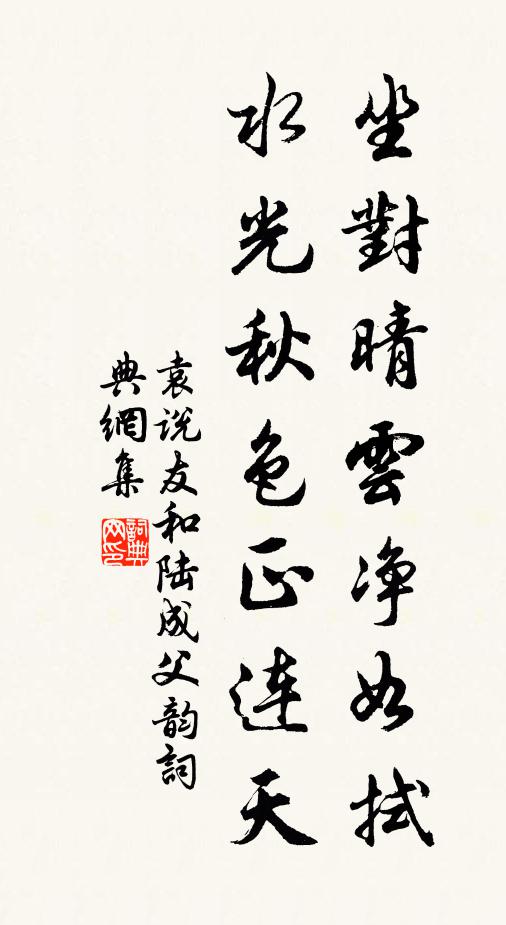 坐對晴雲净如拭
水光秋色正連天
袁说友和陆成父韵詞
典網集
詞典网印